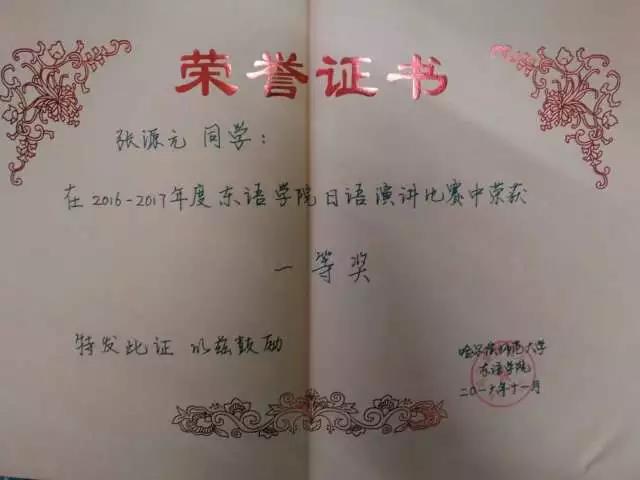 荣誉证书
张源元 同学：
在2016-2017年度东语学院日语演讲比赛中荣获
一等奖
特发此证 以兹鼓励
哈尔滨师范大学
东语学院
二〇一六年十一月